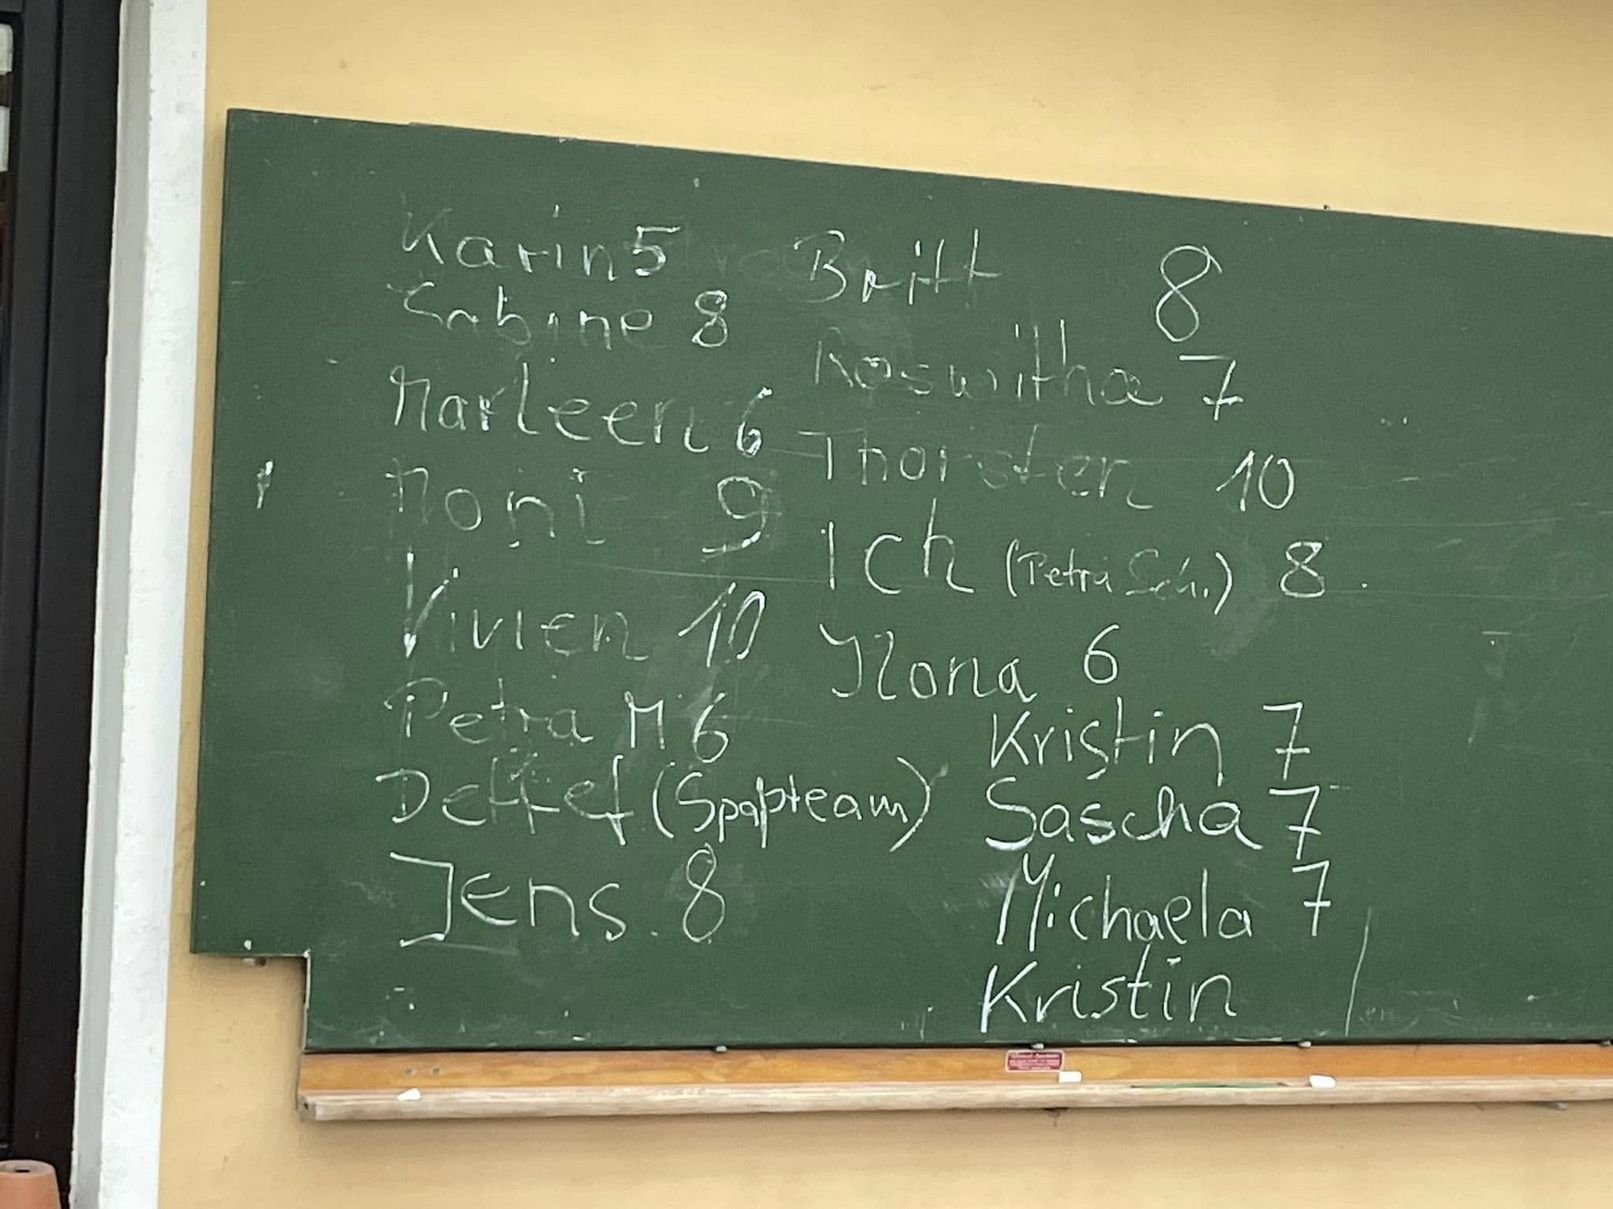 Karin 5
Sabine 8
Marleen 6
Moni 9
Vivien 10
Petra M 6
Detlef (Spapteam)
Jens. 8
Britt 8
Roswitha 7
Thorsten 10
Ich (Petra Sch.) 8.
Ilona 6
Kristin 7
Sascha 7
Michaela 7
Kristin